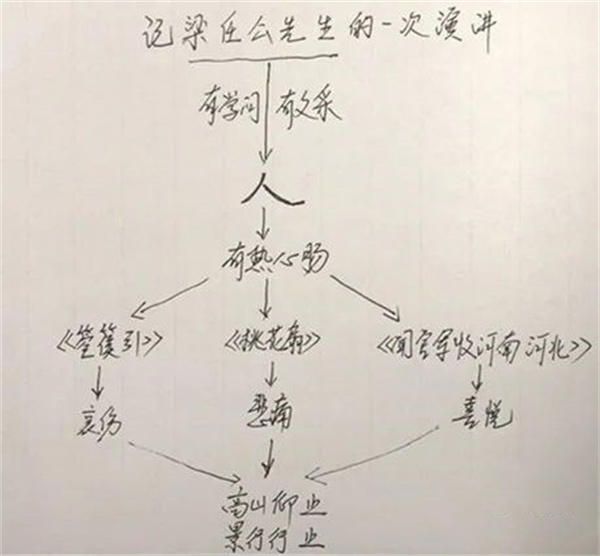 记梁任公先生的一次演讲
有学问 有文采
人
有热心肠
《箜篌引》 《桃花扇》 《闻官军收河南河北》
哀伤 悲痛 喜悦
高山仰止
景行行止